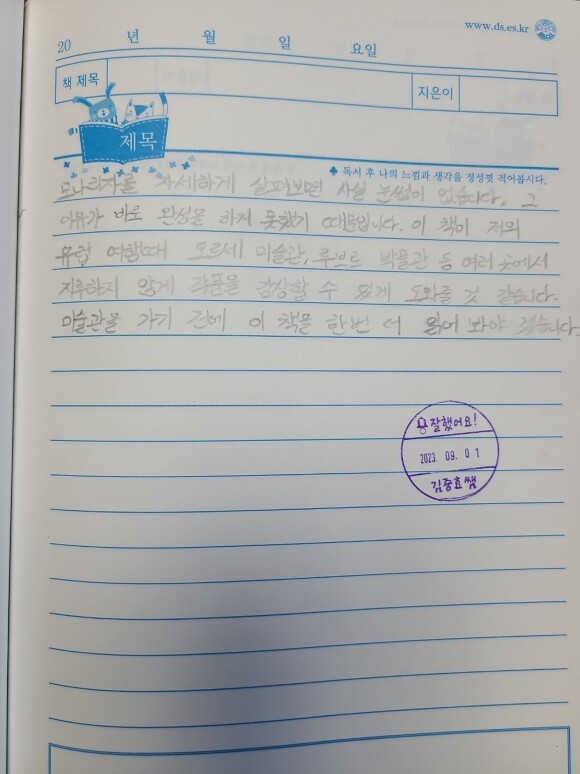 www.ds.es.kr
20 년 월 일 요일
책 제목 지은이
제목
♣ 독서 후 나의 느낌과 생각을 정성껏 적어봅시다.
모나리자를 자세하게 살펴보면 사실 눈썹이 없습니다. 그
이유가 바로 완성을 하지 못했기 때문입니다. 이 책이 저의
유럽 여행때 오르세 미술관, 루브르 박물관 등 여러 곳에서
지루하지 않게 작품을 감상할 수 있게 도와줄 것 같습니다.
미술관을 가기 전에 이 책을 한번 더 읽어 봐야 겠습니다.
참잘했어요!
2023. 09. 01
김중효쌤